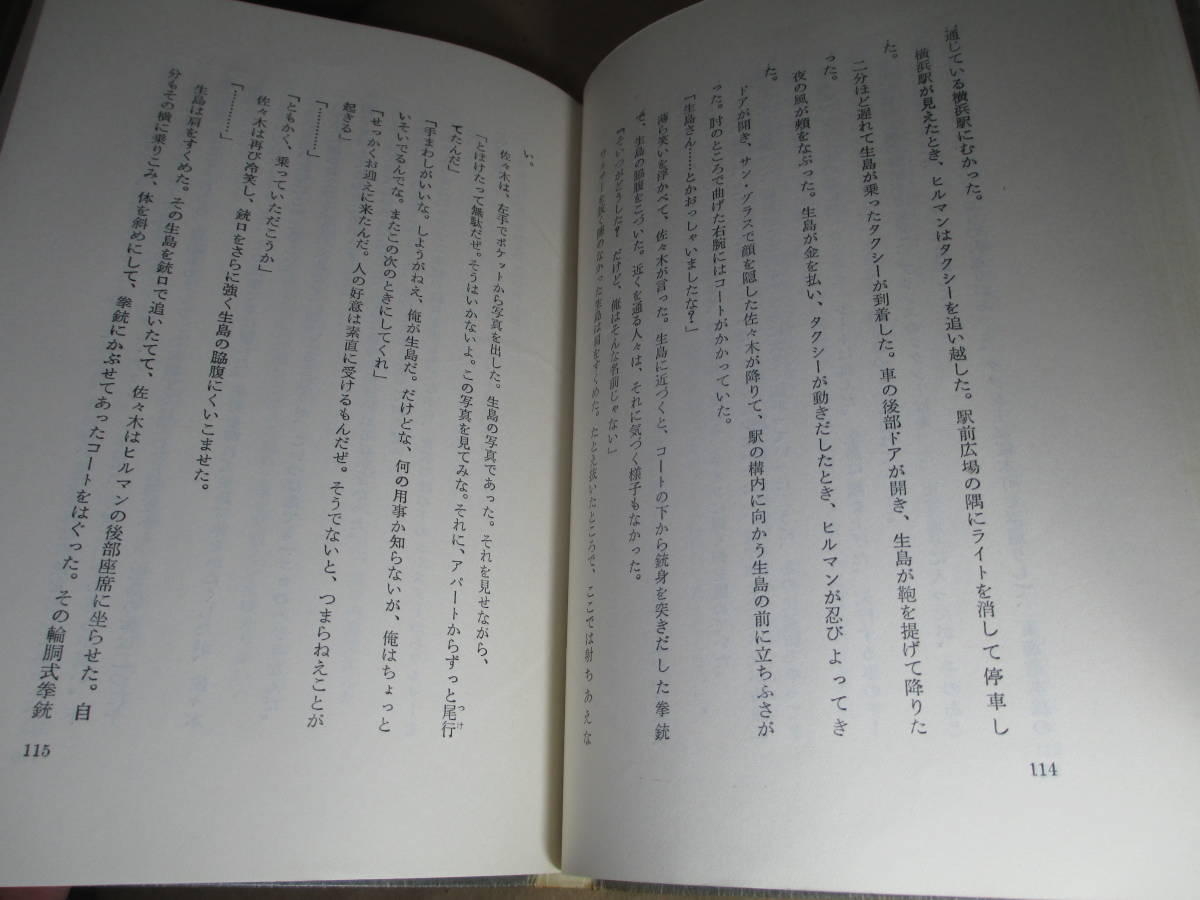 通じている横浜駅にむかった。
横浜駅が見えたとき、ヒルマンはタクシーを追い越した。駅前広場の隅にライトを消して停車し
た。
二分ほど遅れて生島が乗ったタクシーが到着した。車の後部ドアが開き、生島が鞄を提げて降りた
った。
夜の風が頰をなぶった。生島が金を払い、タクシーが動きだしたとき、ヒルマンが忍びよってき
た。
ドアが開き、サン・グラスで顔を隠した佐々木が降りて、駅の構内に向かう生島の前に立ちふさが
った。肘のところで曲げた右腕にはコートがかかっていた。
「生島さん……とかおっしゃいましたな?」
薄ら笑いを浮かべて、佐々木が言った。生島に近づくと、コートの下から銃身を突きだした拳銃
で、生島の脇腹をこづいた。近くを通る人々は、それに気づく様子もなかった。
「そいつがどうした? だけど、俺はそんな名前じゃない」
のなかった生島は肩をすくめた。たとえ抜いたところで、ここでは射ちあえな
114
い。
佐々木は、左手でポケットから写真を出した。生島の写真であった。それを見せながら、
「とぼけたって無駄だぜ。そうはいかないよ。この写真を見てみな。それに、アパートからずっと尾行
つけ
てたんだ」
「手まわしがいいな。しようがねえ、俺が生島だ。だけどな、何の用事か知らないが、俺はちょっと
いそいでるんでな。またこの次のときにしてくれ」
「せっかくお迎えに来たんだ。人の好意は素直に受けるもんだぜ。そうでないと、つまらねえことが
起きる」
「…………」
「ともかく、乗っていただこうか」
佐々木は再び冷笑し、銃口をさらに強く生島の脇腹にくいこませた。
「…………」
生島は肩をすくめた。その生島を銃口で追いたてて、佐々木はヒルマンの後部座席に坐らせた。自
分もその横に乗りこみ、体を斜めにして、拳銃にかぶせてあったコートをはぐった。その輪胴式拳銃
115